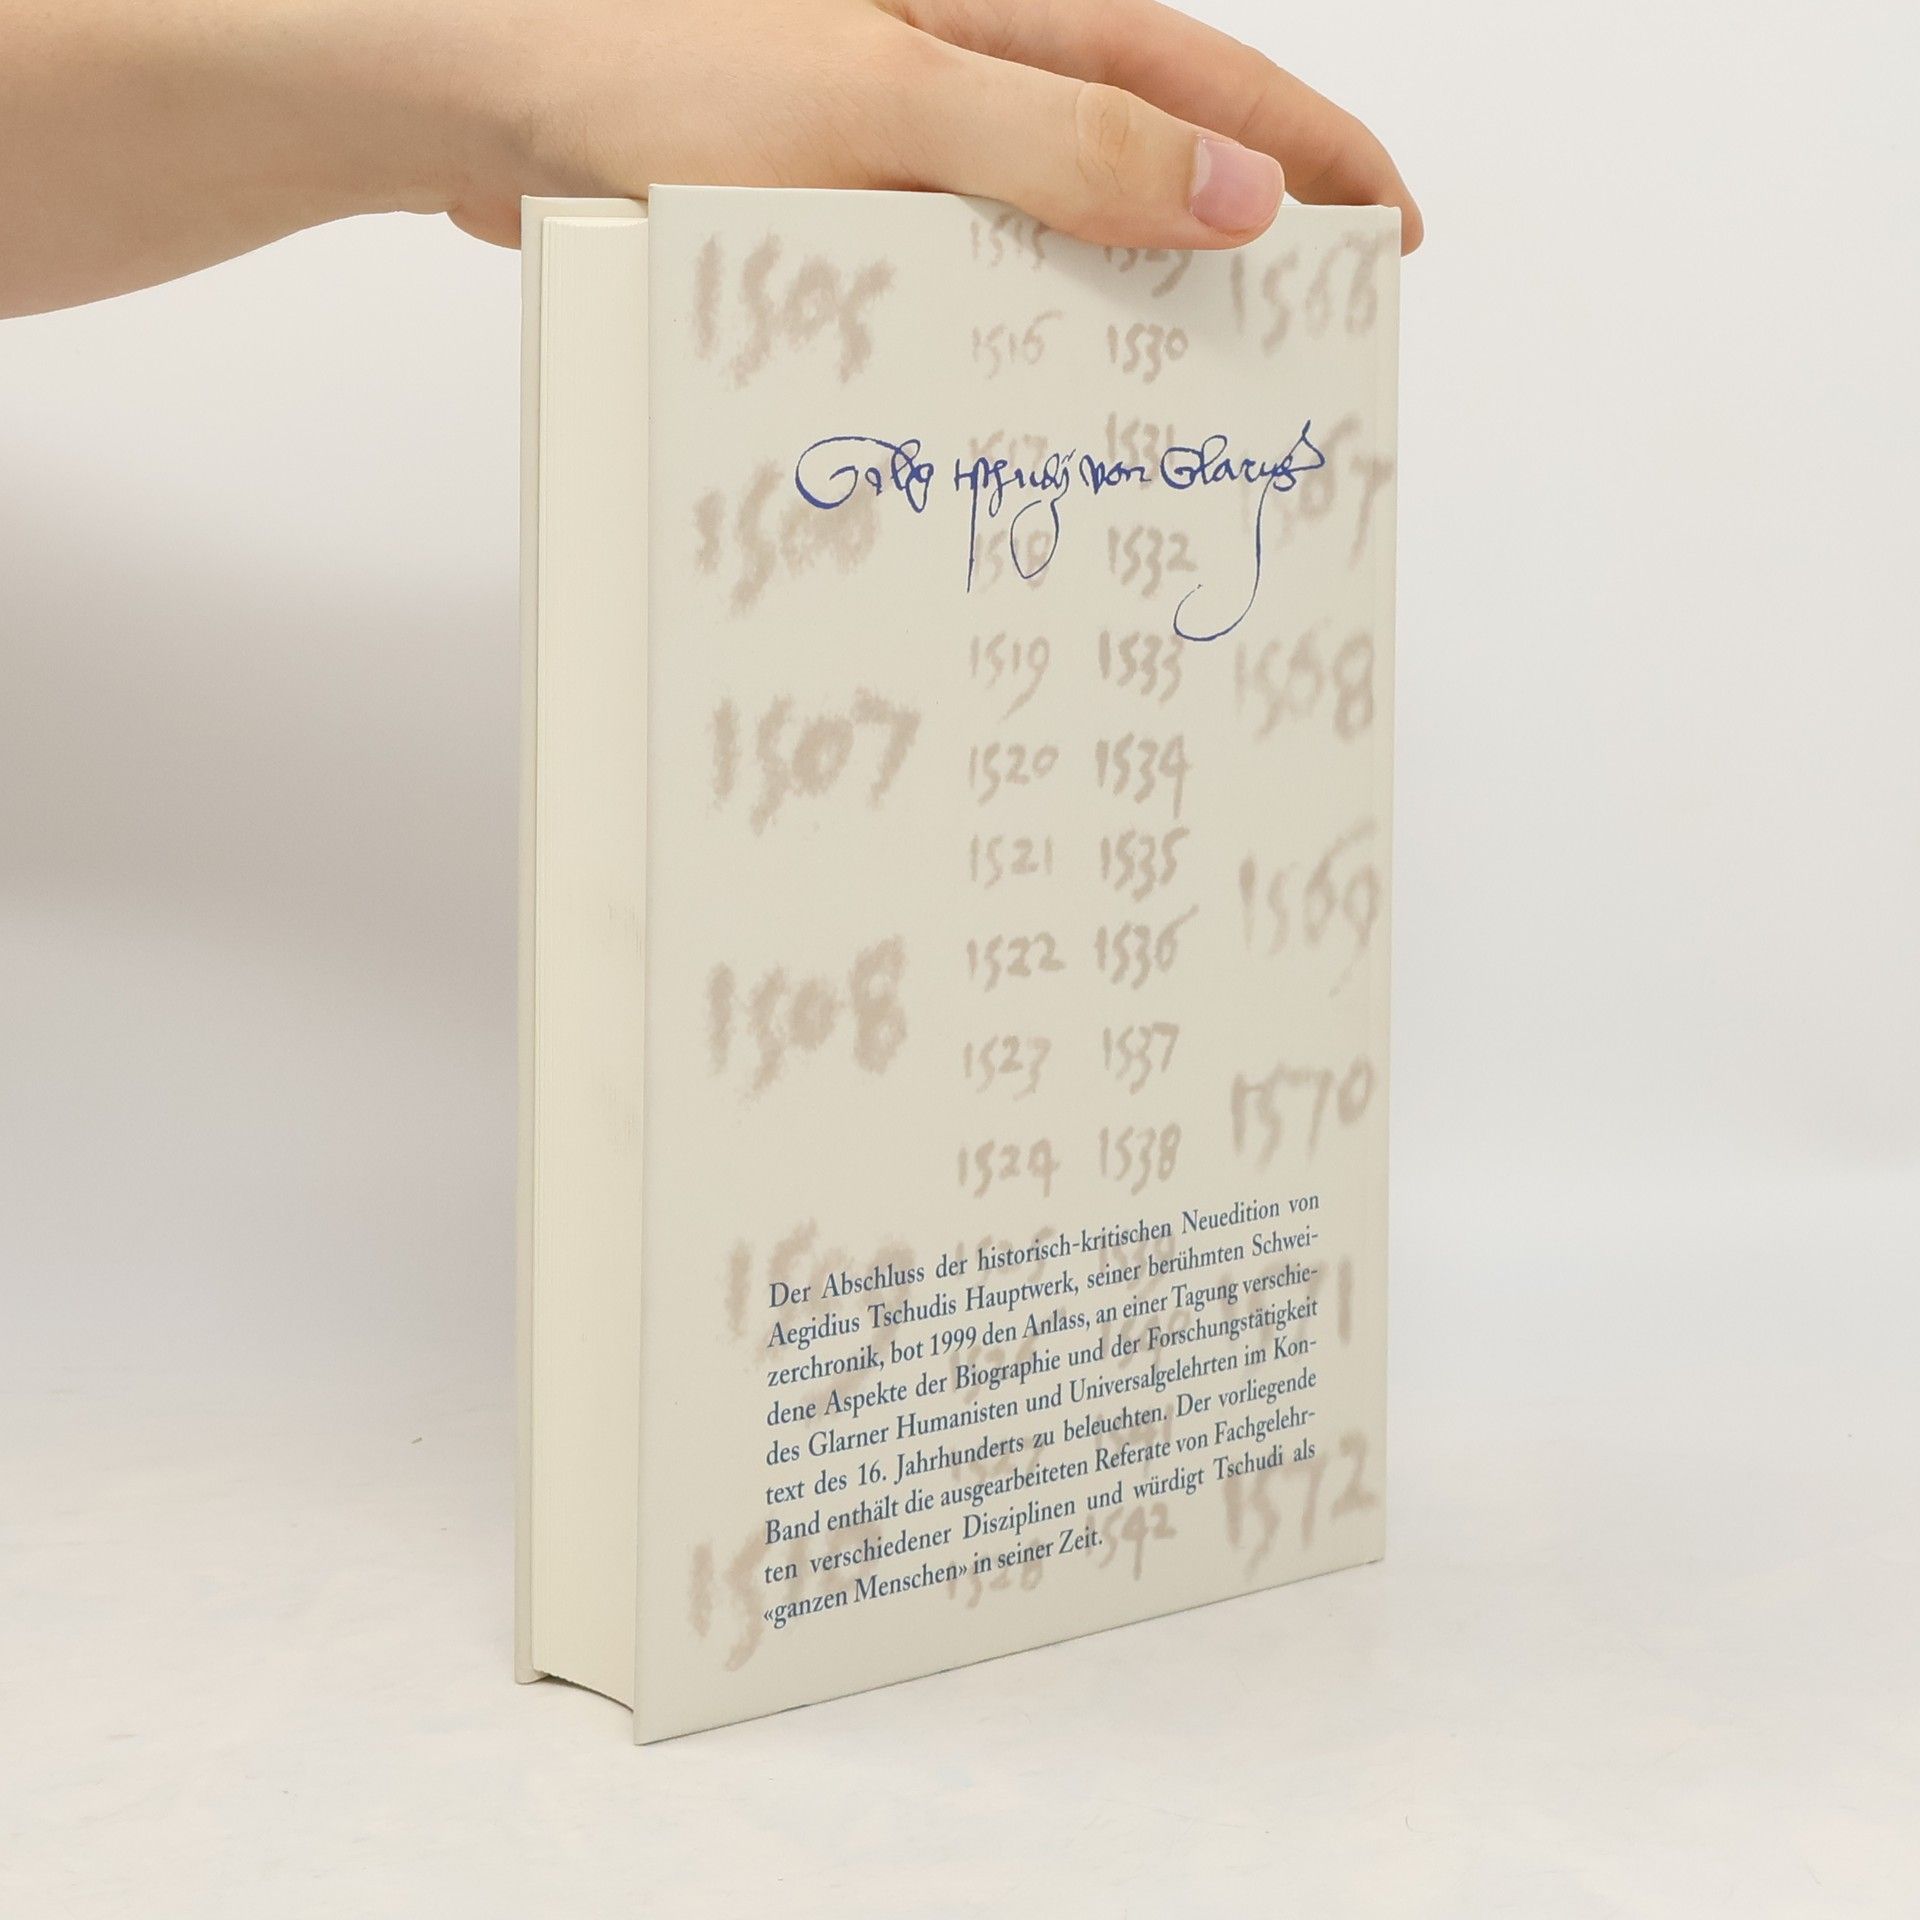 1505 1515 1529 1566
1516 1530
1517 1531 1567
Gilg Tschudj von Glarus
1506 1518 1532
1519 1533 1568
1507 1520 1534
1521 1535 1569
1508 1522 1536
1523 1537 1570
1524 1538
1509 1525 1539
Der Abschluss der historisch-kritischen Neuedition von
Aegidius Tschudis Hauptwerk, seiner berühmten Schwei-
zerchronik, bot 1999 den Anlass, an einer Tagung verschie-
dene Aspekte der Biographie und der Forschungstätigkeit
des Glarner Humanisten und Universalgelehrten im Kon-
text des 16. Jahrhunderts zu beleuchten. Der vorliegende
Band enthält die ausgearbeiteten Referate von Fachgelehr-
ten verschiedener Disziplinen und würdigt Tschudi als
«ganzen Menschen» in seiner Zeit.
1528 1542 1572